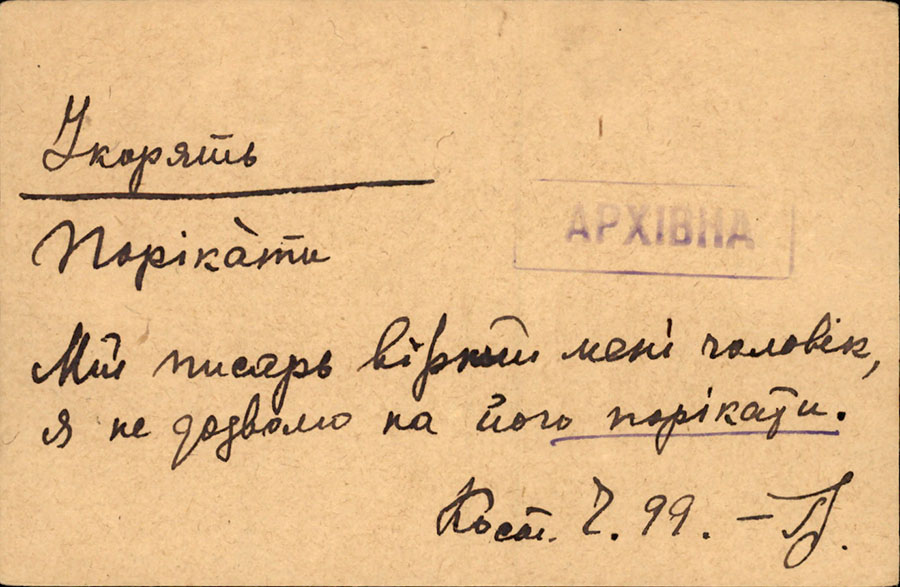 Укорять
АРХІВНА
Поріка̀ти
Мій писарь вірний мені чоловік,
я не дозволю на його порікати.
Кост. Ч. 99. –